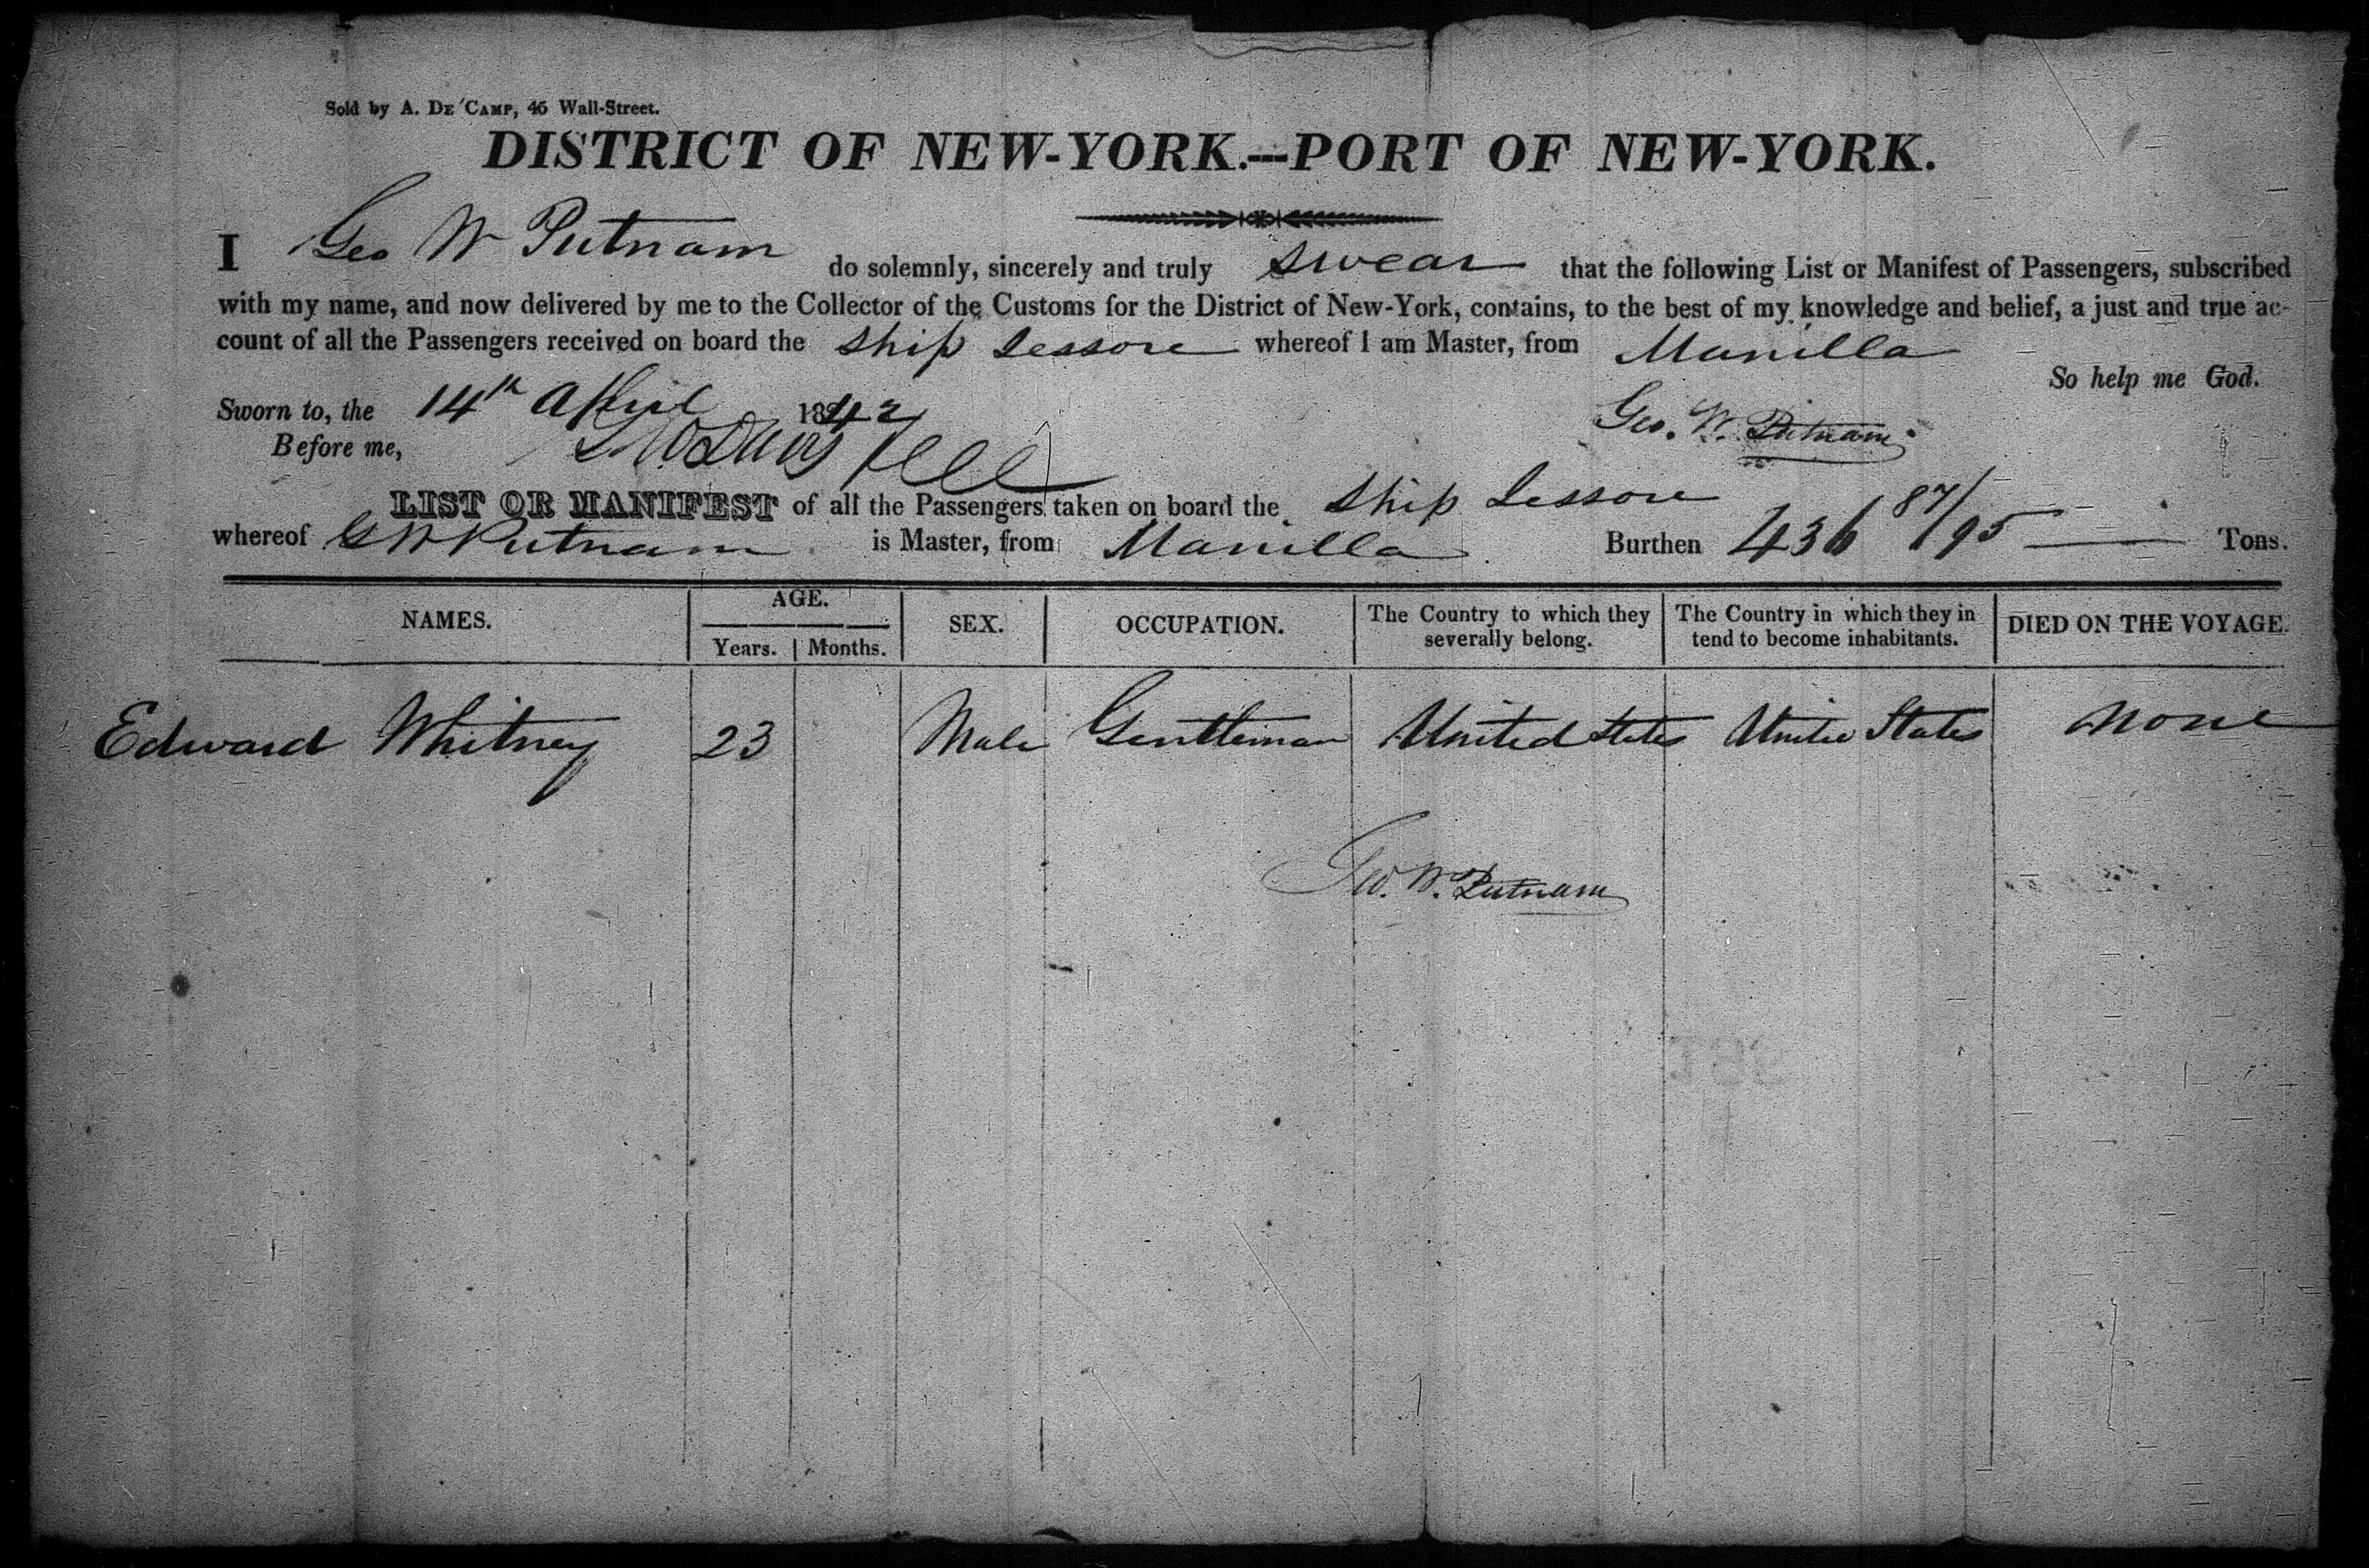 Sold by A. DE CAMP, 45 Wall-Street.
DISTRICT OF NEW-YORK.---PORT OF NEW-YORK.
I Geo W Putnam do solemnly, sincerely and truly swear that the following List or Manifest of Passengers, subscribed
with my name, and now delivered by me to the Collector of the Customs for the District of New-York, contains, to the best of my knowledge and belief, a just and true ac-
count of all the Passengers received on board the Ship Lessore whereof I am Master, from Manilla
So help me God.
Sworn to, the 14th April 1842
Geo. W. Putnam
Before me,
LIST OR MANIFEST of all the Passengers taken on board the Ship Lessore
whereof G W Putnam is Master, from Manilla Burthen 436 87/95 Tons.
NAMES. AGE. Years. Months. SEX. OCCUPATION. The Country to which they severally belong. The Country in which they in tend to become inhabitants. DIED ON THE VOYAGE.
Edward Whitney 23 Male Gentleman United States United States None
Geo. W. Putnam